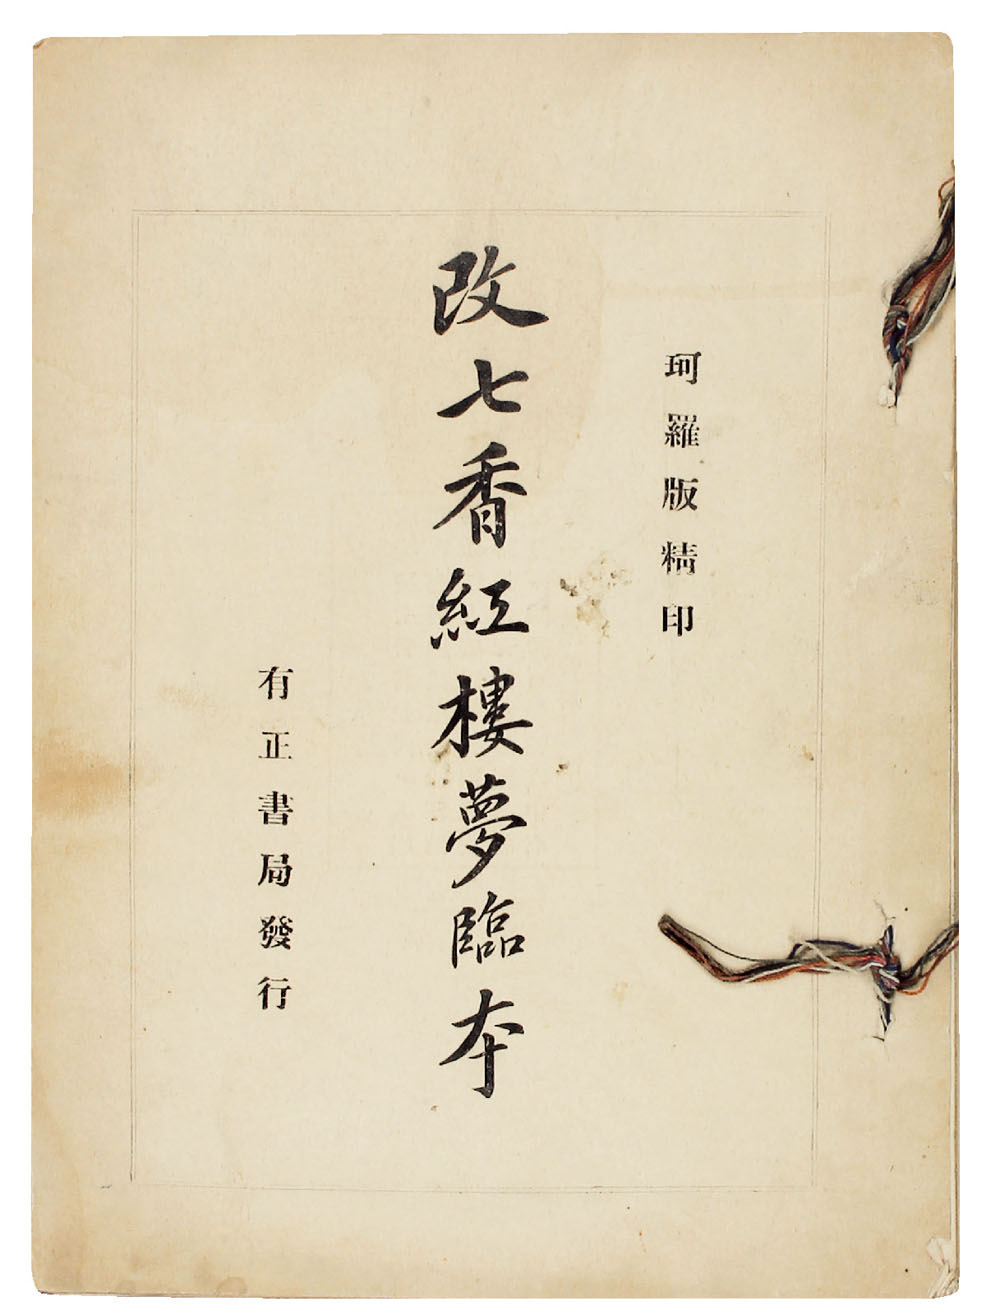 珂羅版精印
改七香紅樓夢臨本
有正書局發行